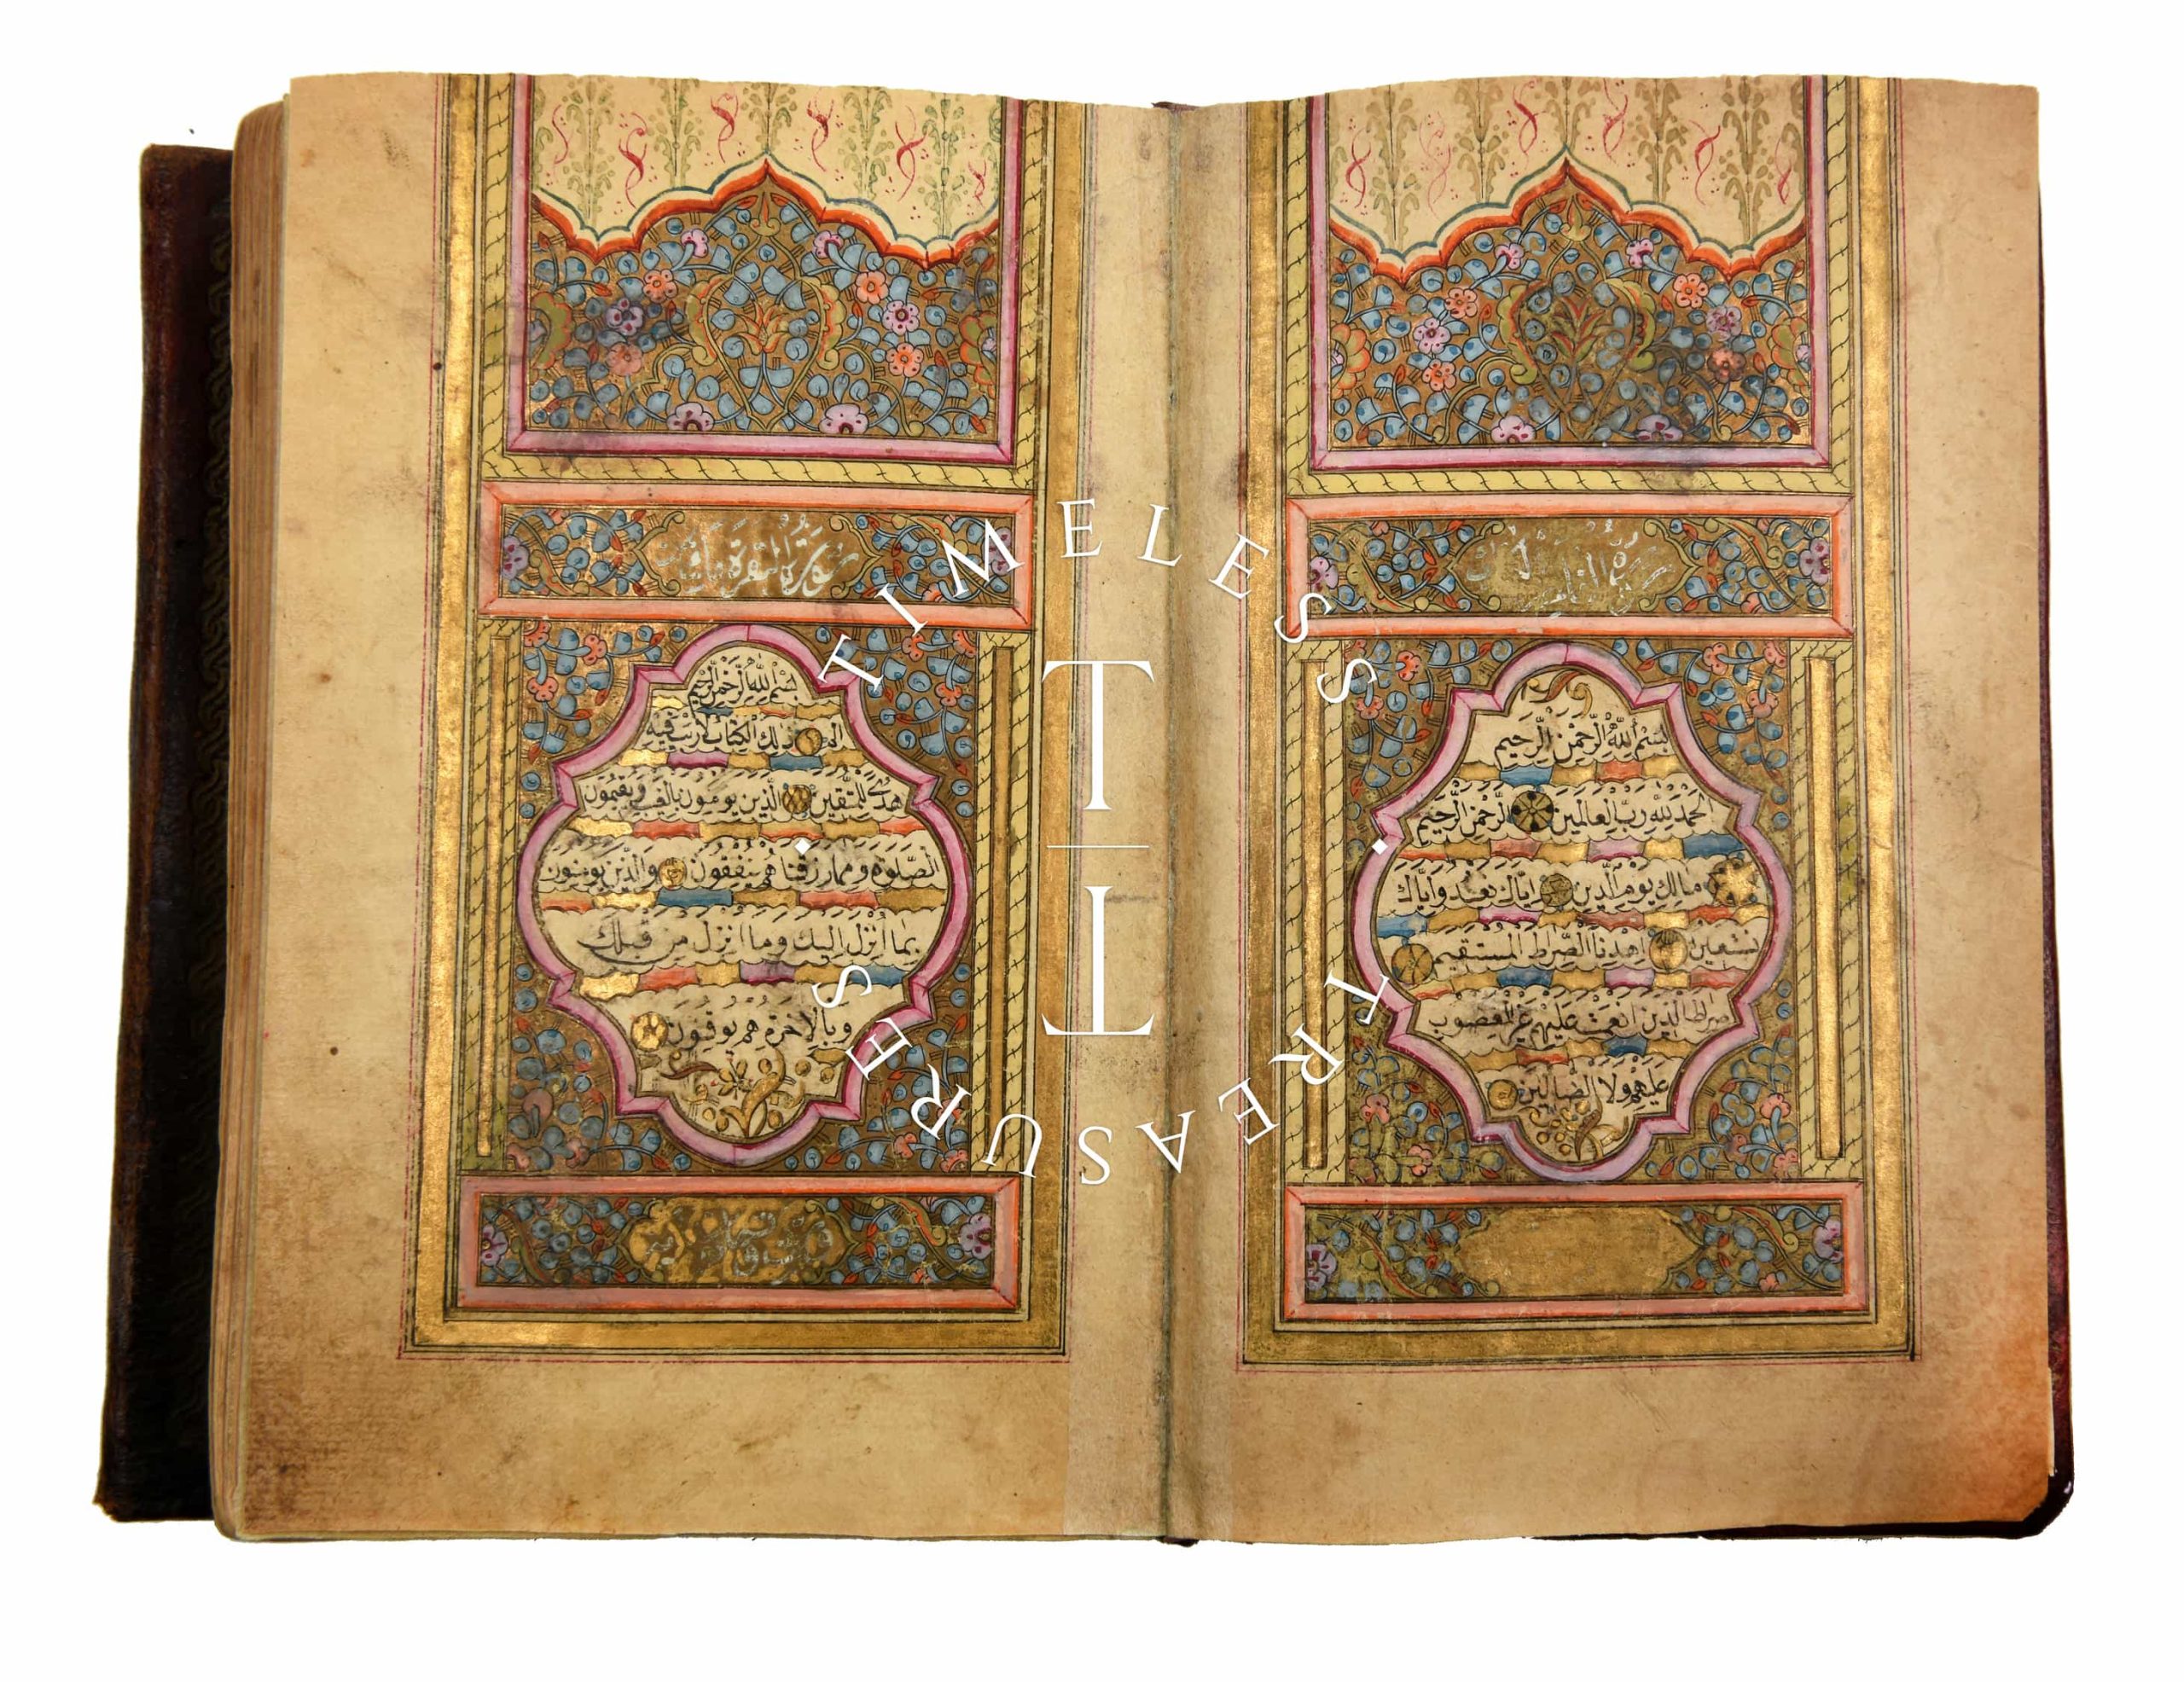 بِسْمِ اللّٰهِ الرَّحْمٰنِ الرَّحِيمِ
الحَمْدُ لِلّٰهِ رَبِّ الْعَالَمِينَ الرَّحْمٰنِ الرَّحِيمِ
مالِكِ يَوْمِ الدِّينِ اِيَّاكَ نَعْبُدُ وَاِيَّاكَ
نَسْتَعِينُ اِهْدِنَا الصِّرَاطَ الْمُسْتَقِيمَ
صِرَاطَ الَّذِينَ اَنْعَمْتَ عَلَيْهِمْ غَيْرِ الْمَغْضُوبِ
عَلَيْهِمْ وَلَا الضَّالِّينَ
سورة البقرة
بِسْمِ اللّٰهِ الرَّحْمٰنِ الرَّحِيمِ
الم ذٰلِكَ الْكِتَابُ لَا رَيْبَ فِيهِ
هُدًى لِلْمُتَّقِينَ الَّذِينَ يُؤْمِنُونَ بِالْغَيْبِ وَيُقِيمُونَ
الصَّلٰوةَ وَمِمَّا رَزَقْنَاهُمْ يُنْفِقُونَ وَالَّذِينَ يُؤْمِنُونَ
بِمَا اُنْزِلَ اِلَيْكَ وَمَا اُنْزِلَ مِنْ قَبْلِكَ
وَبِالْاٰخِرَةِ هُمْ يُوقِنُونَ
TIMELESS
TT
TREASURES